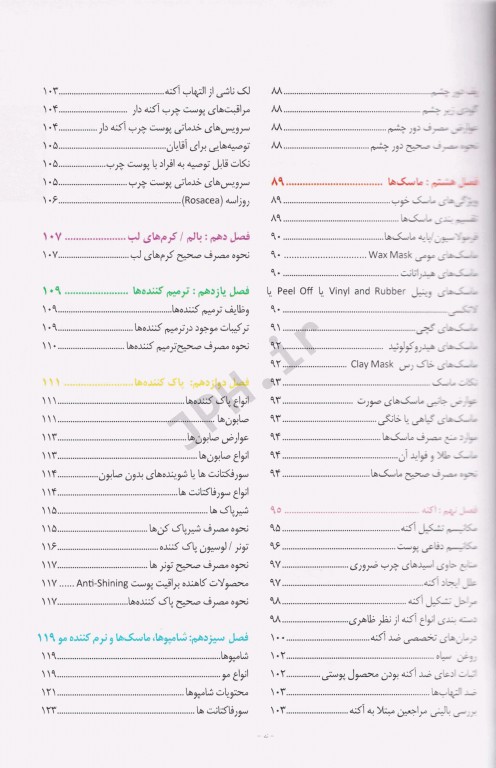 پف دور چشم ........ ۸۸
گودی زیر چشم ........ ۸۸
عوارض مصرف دور چشم ........ ۸۸
نحوه مصرف صحیح دور چشم ........ ۸۸
فصل هشتم : ماسک‌ها ........ ۸۹
ویژگی‌های ماسک خوب ........ ۸۹
تقسیم بندی ماسک‌ها ........ ۸۹
فرمولاسیون/پایه ماسک‌ها ........ ۹۰
ماسک‌های مومی Wax Mask ........ ۹۰
ماسک‌های هیدراتانت ........ ۹۰
ماسک‌های وینیل Vinyl and Rubber یا Peel Off یا
لاتکسی ........ ۹۰
ماسک‌های گچی ........ ۹۱
ماسک‌های هیدروکولوئید ........ ۹۲
ماسک‌های خاک رس Clay Mask ........ ۹۲
نکات ماسک ........ ۹۳
عوارض جانبی ماسک‌های صورت ........ ۹۳
ماسک‌های گیاهی یا خانگی ........ ۹۳
موارد منع مصرف ماسک‌ها ........ ۹۴
ماسک طلا و فواید آن ........ ۹۴
نحوه مصرف صحیح ماسک‌ها ........ ۹۴
فصل نهم : آکنه ........ ۹۵
مکانیسم تشکیل آکنه ........ ۹۵
مکانیسم دفاعی پوست ........ ۹۶
منابع حاوی اسیدهای چرب ضروری ........ ۹۷
علل ایجاد آکنه ........ ۹۷
مراحل تشکیل آکنه ........ ۹۸
دسته بندی انواع آکنه از نظر ظاهری ........ ۹۸
درمان‌های تخصصی ضد آکنه ........ ۱۰۰
روغن سیاه ........ ۱۰۲
اثبات ادعای ضد آکنه بودن محصول پوستی ........ ۱۰۲
ضد التهاب‌ها ........ ۱۰۳
بررسی بالینی مراجعین مبتلا به آکنه ........ ۱۰۳
لک ناشی از التهاب آکنه ........ ۱۰۳
مراقبت‌های پوست چرب آکنه دار ........ ۱۰۴
سرویس‌های خدماتی پوست چرب آکنه دار ........ ۱۰۴
توصیه‌هایی برای آقایان ........ ۱۰۵
نکات قابل توصیه به افراد با پوست چرب ........ ۱۰۵
سرویس‌های خدماتی پوست چرب ........ ۱۰۵
روزاسه (Rosacea) ........ ۱۰۶
فصل دهم : بالم / کرم‌های لب ........ ۱۰۷
نحوه مصرف صحیح کرم‌های لب ........ ۱۰۷
فصل یازدهم : ترمیم کننده‌ها ........ ۱۰۹
وظایف ترمیم کننده‌ها ........ ۱۰۹
ترکیبات موجود درترمیم کننده‌ها ........ ۱۰۹
نحوه مصرف صحیح‌ترمیم کننده‌ها ........ ۱۱۰
فصل دوازدهم: پاک کننده‌ها ........ ۱۱۱
انواع پاک کننده‌ها ........ ۱۱۱
صابون‌ها ........ ۱۱۱
عوارض صابون‌ها ........ ۱۱۳
انواع صابون‌ها ........ ۱۱۳
سورفکتانت ها یا شوینده‌های بدون صابون ........ ۱۱۴
انواع سورفاکتانت ها ........ ۱۱۴
شیرپاک ها ........ ۱۱۵
نحوه مصرف شیرپاک کن‌ها ........ ۱۱۵
تونر / لوسیون پاک کننده ........ ۱۱۶
نحوه مصرف صحیح تونر ها ........ ۱۱۷
محصولات کاهنده براقیت پوست Anti-Shining ...... ۱۱۷
نحوه مصرف صحیح پاک کننده‌ها ........ ۱۱۷
فصل سیزدهم: شامپوها، ماسک‌ها و نرم کننده مو ۱۱۹
شامپوها ........ ۱۱۹
انواع مو ........ ۱۱۹
محتویات شامپوها ........ ۱۲۱
سورفاکتانت ها ........ ۱۲۳
JPH.ir